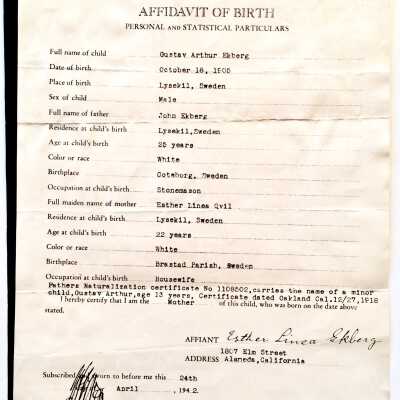 AFFIDAVIT OF BIRTH
PERSONAL AND STATISTICAL PARTICULARS
Full name of child Gustav Arthur Ekberg
Date of birth October 18, 1905
Place of birth Lysekil, Sweden
Sex of child Male
Full name of father John Ekberg
Residence at child's birth Lysekil, Sweden
Age at child's birth 25 years
Color or race White
Birthplace Goteborg, Sweden
Occupation at child's birth Stonemason
Full maiden name of mother Esther Linea Qvil
Residence at child's birth Lysekil, Sweden
Age at child's birth 22 years
Color or race White
Birthplace Brastad Parish, Sweden
Occupation at child's birth Housewife
Fathers Naturalization certificate No 1108502, carries the name of a minor
child, Gustav Arthur, age 13 years, Certificate dated Oakland Cal. 12/27, 1918
I hereby certify that I am the Mother of this child, who was born on the date above
stated.
AFFIANT Esther Linea Ekberg
ADDRESS 1807 Elm Street
Alameda, California
Subscribed sworn to before me this 24th
April, 1942.